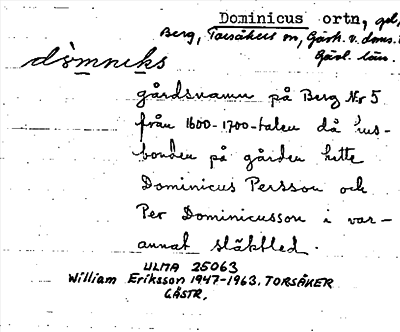 Dominicus ortn, gel,
Berg, Torsåkers sn, Gästr. v. doms.
Gävl. län.
dòmneks
gårdsnamn på Berg Nr 5
från 1600-1700-talen då hus-
bonden på gården hette
Dominicus Persson och
Per Dominicusson i var-
annat släktled.
ULMA 25063
William Eriksson 1947-1963. TORSÅKER
GÄSTR.